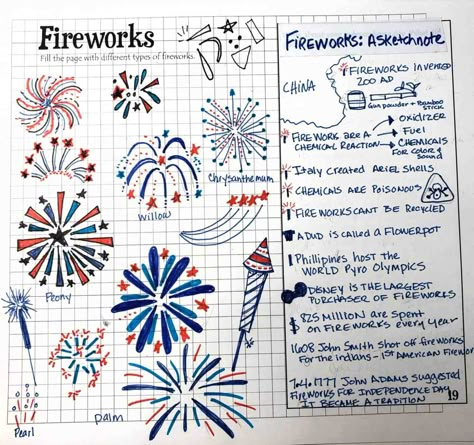 Fireworks
Fill the page with different types of fireworks.
Chrysanthemum
Willow
Peony
Palm
Pearl
FIREWORKS: A SKETCHNOTE
CHINA
FIREWORKS INVENTED
200 AD
Gun powder + Bamboo
STICK
FIREWORK ARE A
CHEMICAL REACTION
OXIDIZER
FUEL
CHEMICALS
FOR COLOR &
SOUND
ITALY CREATED ARIEL SHELLS
CHEMICALS ARE POISONOUS
FIREWORKS CANT BE RECYCLED
A DUD IS CALLED A FLOWERPOT
Phillipines HOST the
WORLD Pyro Olympics
DISNEY IS THE LARGEST
PURCHASER OF FIREWORKS
$ 825 MILLION are SPENT
ON FIREWORKS every year
1608 John Smith shot off fireworks
For the Indians - 1st American Firework
7.4.1777 John ADAMS suggested
Fireworks FOR INDEPENDENCE DAY
IT BECAME A TRADITION
19